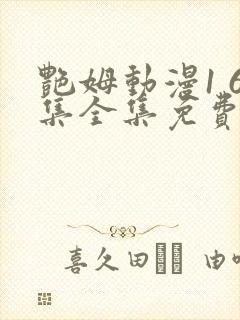 艷姆動漫1 6
集全集免費
喜久田 由